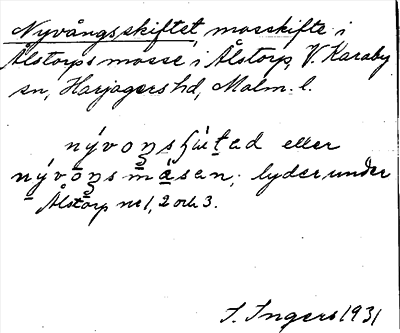 Nyvångsskiftet, mosskifte i
Ålstorps mosse i Ålstorp, V. Karaby
sn, Harjagers hd, Malm. l.
nývo̲ns eller
nývo̲ns må̲san; lyder under
Ålstorp nr 1, 2 och 3.
I. Ingers 1931